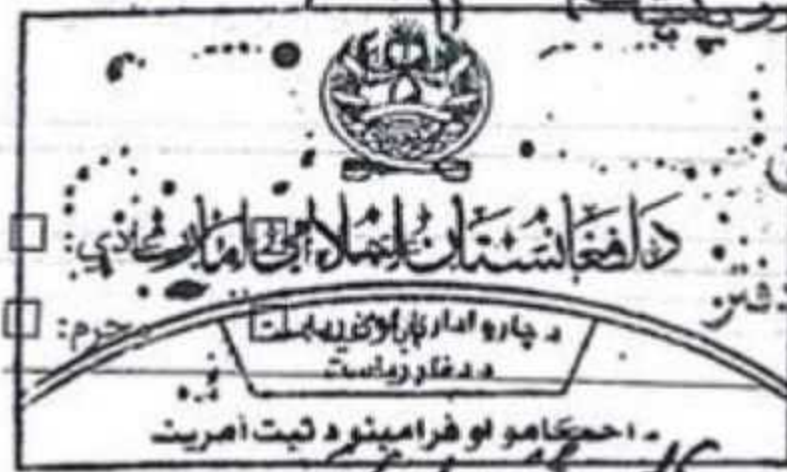 د افغانستان اسلامي امارت
عادي:
محرم:
د چارو اداري لوی ریاست
د دفتر ریاست
د احکامو او فرامینو د ثبت آمریت